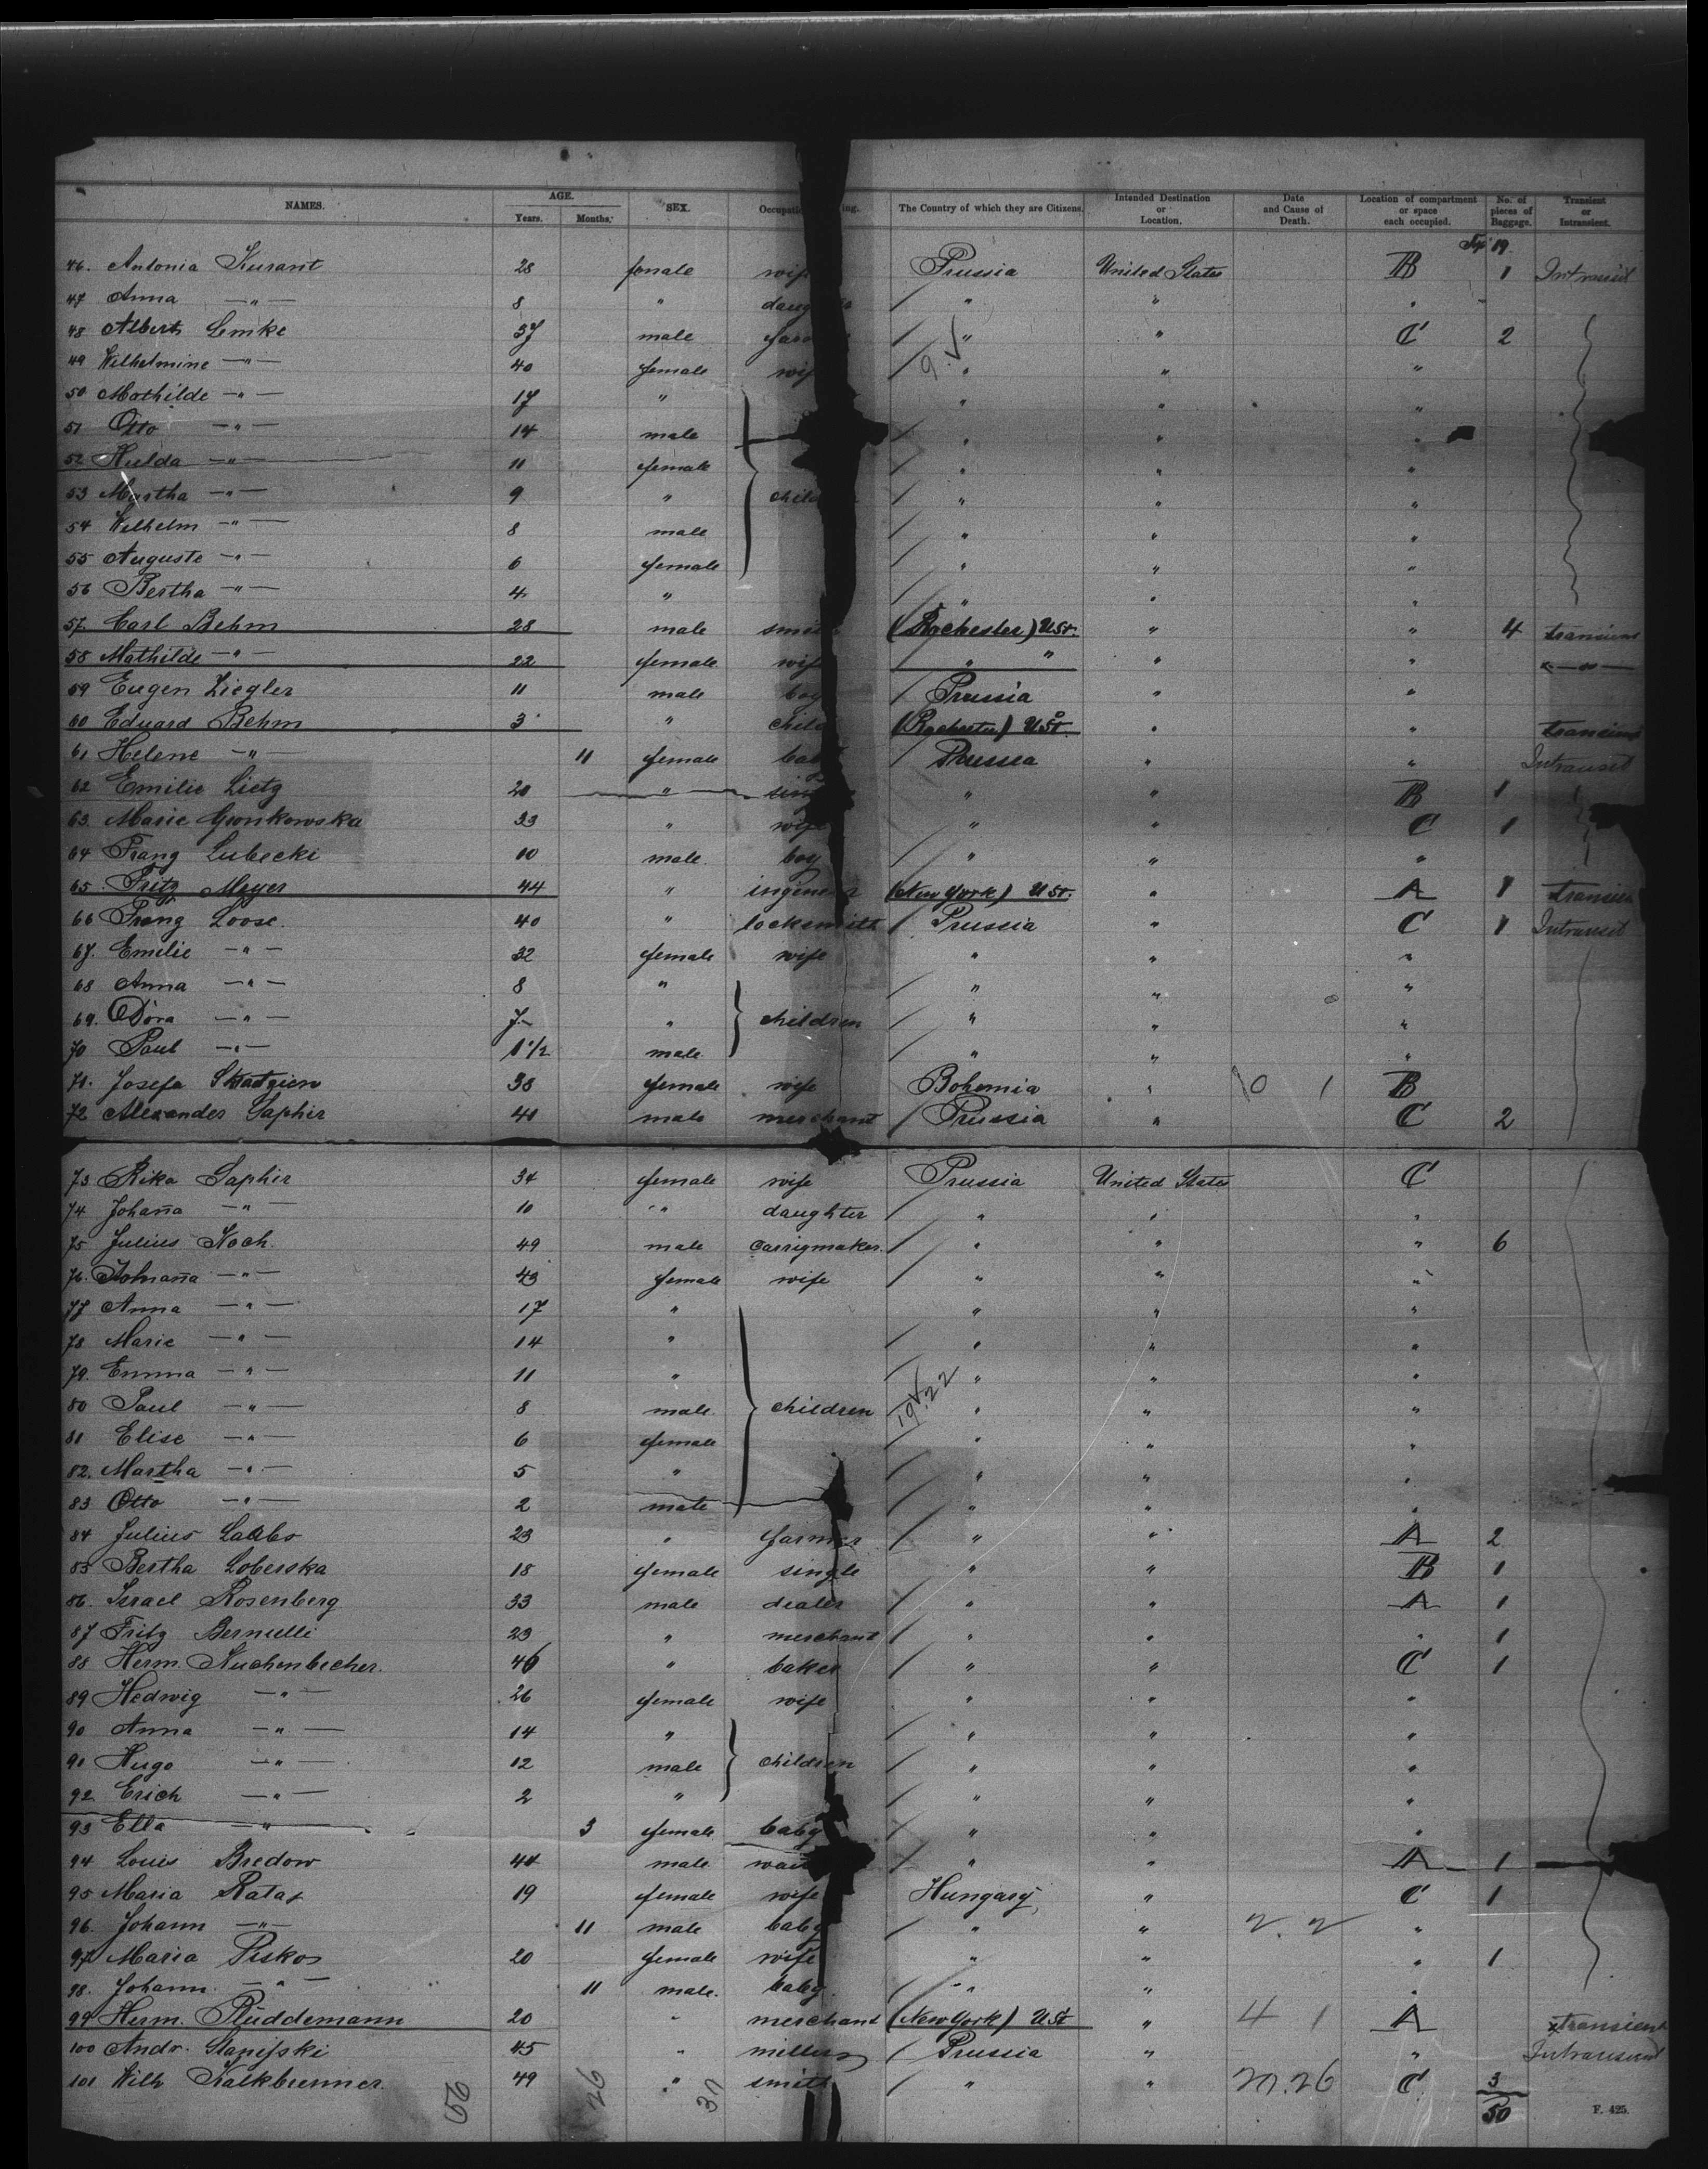 NAMES. AGE. Years. Months. SEX. Occupati ing. The Country of which they are Citizens. Intended Destination or Location. Date and Cause of Death. Location of compartment or space each occupied. No. of pieces of Baggage. Transient or Intransient.
19.
46. Antonia Kurant 28 female wife Prussia United States B 1 Intransit
47 Anna —"— 8 " daug " " "
48 Albert Lemke 37 male farm " " C 2
49 Wilhelmine —"— 40 female wife " " "
50 Mathilde —"— 17 " " " "
51 Otto —"— 14 male " " "
52 Hulda —"— 11 female " " "
53 Martha —"— 9 " child " " "
54 Wilhelm —"— 8 male " " "
55 Auguste —"— 6 female " " "
56 Bertha —"— 4 " " " "
57 Carl Behm 28 male smith (Rochester) USt. " " 4 transient
58 Mathilde —"— 22 female wife " " " " —"—
59 Eugen Ziegler 11 male boy Prussia " "
60 Eduard Behm 3 " child (Rochester) USt. " " transient
61 Helene —"— 11 female baby Prussia " " Intransit
62 Emilie Lietz 20 " sing " " B 1
63. Marie Gronkowska 33 " wife " " C 1
64 Franz Lubecki 10 male boy " " "
65. Fritz Meyer 44 " ingineur (New York) USt. " A 1 transient
66 Franz Loose. 40 " locksmith Prussia " C 1 Intransit
67. Emilie —"— 32 female wife " " "
68 Anna —"— 8 " " " "
69. Dora —"— 7 " children " " "
70 Paul —"— 1 1/2 male " " "
71. Josefa 38 female wife Bohemia " 10 1 B
72 Alexander Saphir 40 male merchant Prussia " C 2
73 Rika Saphir 34 female wife Prussia United States C
74 Johan̄a —"— 10 " daughter " " "
75 Julius Koch. 49 male Carrigmaker. " " " 6
76. Johan̄a —"— 43 female wife " " "
77 Anna —"— 17 " " " "
78 Marie —"— 14 " " " "
79. Emma —"— 11 " " " "
80 Paul —"— 8 male children " " "
81 Elise —"— 6 female " " "
82. Martha —"— 5 " " " "
83 Otto —"— 2 male " " "
84 Julius Laabs 23 " farmer " " A 2
85 Bertha Loberska 18 female single " " B 1
86. Israel Rosenberg 33 male dealer " " A 1
87 Fritz Bernulli 23 " merchant " " " 1
88 Herm. Kuchenbecher. 46 " baker " " C 1
89 Hedwig —"— 26 female wife " " "
90 Anna —"— 14 " " " "
91 Hugo —"— 12 male children " " "
92 Erich —"— 2 " " " "
93 Ella —"— 3 female baby " " "
94 Louis Bredow 44 male wait " " A 1
95 Maria Rataj 19 female wife Hungary " C 1
96. Johann —"— 11 male baby " " 2. 2 "
97 Maria Piskos 20 female wife " " " 1
98. Johann. —"— 11 male. baby. " " "
99 Herm. Plüddemann 20 " merchant (New York) USt " 4 1 A transient
100 Andr. 45 " miller Prussia " " Intransient
101 Wilh Kalkbrenner. 49 " smith " " 20.26 C 3
56 26 30 50
F. 425.